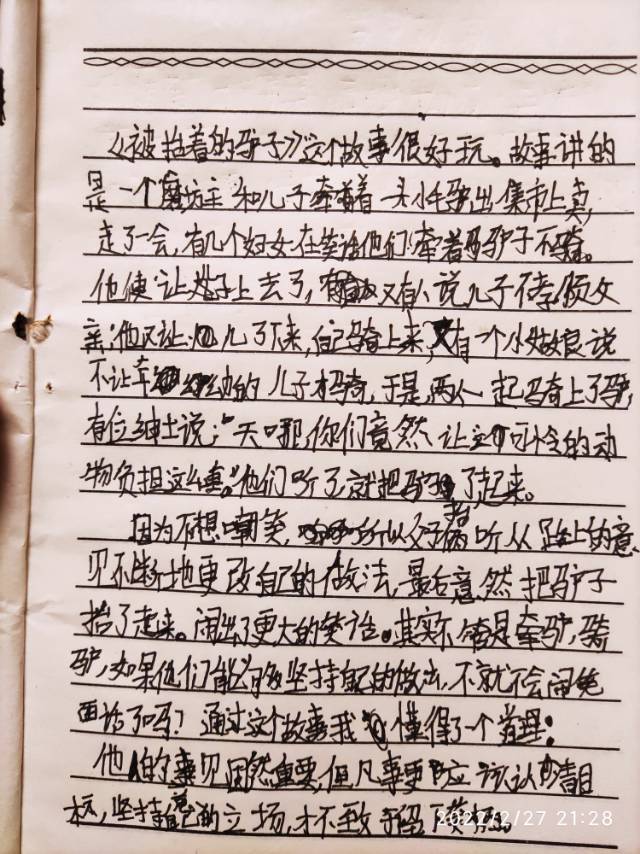 《被抬着的驴子》这个故事很好玩。故事讲的
是一个磨坊主和儿子牵着一头小毛驴出集市上卖,
走了一会,有几个妇女在笑话他们牵着驴子不骑。
他便让子上去了,又有人说儿子不孝顺父
亲;他又让儿子下来,自己骑上来,又有一个小姑娘说
不让年幼的儿子骑,于是,两人一起骑上了驴,
有位绅士说:“天哪,你们竟然让这可怜的动
物负担这么重。”他们听了,就把驴子了起来。
因为不想嘲笑,所以父子听从路上的意
见不断地更改自己的做法,最后意然把驴子
抬了起来。闹出了更大的笑话。其实不管是牵驴,骑
驴,如果他们能够坚持自己的做法,不就不会闹笑
话了吗?通过这个故事我懂得了一个道理:
他人的意见固然重要,但凡事更应该认清目
标,坚持自己的立场,才不致于留下
2022/2/27 21:28